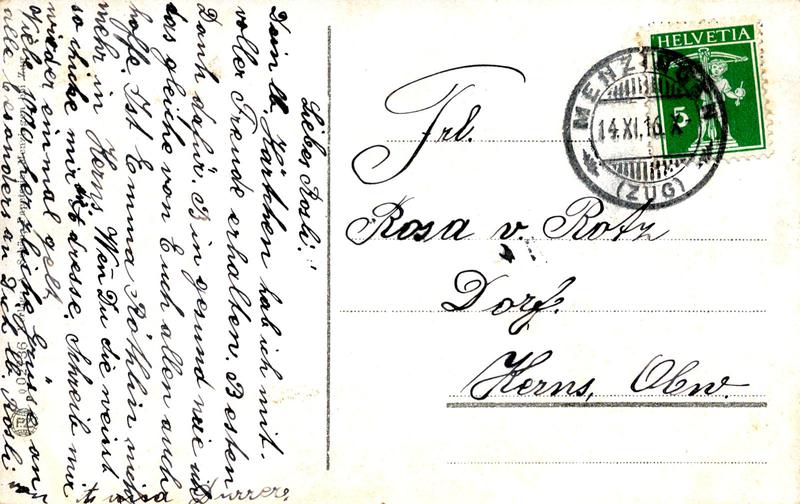 Liebes Rosli!
Dein lb. Kärtchen hab ich mit
voller Freude erhalten. Besten
Dank dafür. Bin gesund was
das gleiche von Euch allen auch
hoffe. Ist Emma Röthlin nicht
mehr in Kerns. Wen̄ Du die weist
so schicke mir Adresse. Schreib mir
wieder einmal gelt
Viele 1000 herzliche Grüsse an
alle besonders an Dich lb. Rosli
HELVETIA
5
MENZINGEN
14.XI.16.X
(ZUG)
Frl.
Rosa v. Rotz
Dorf.
Kerns, Obw.